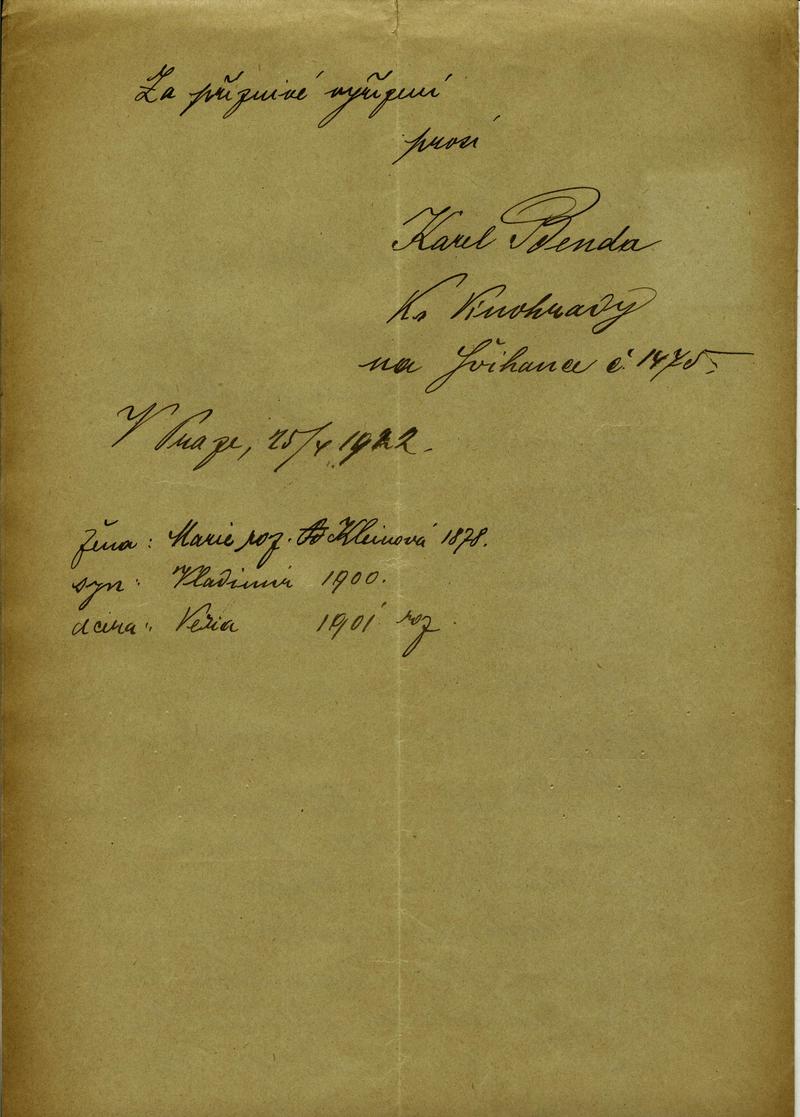 Za příznivé vyřízení
prosí
Karel Benda
Kr Vinohrady
na Švihance č. 1475.
V Praze, 25/V 1922.
žena: Marie roz. Kleinová 1878.
syn: Vladimír 1900.
dcera: Věra 1901 roz.